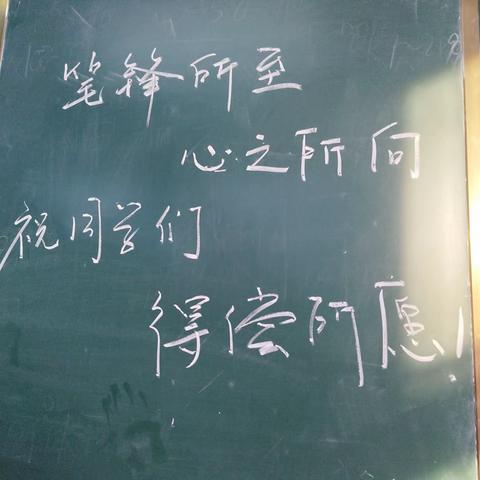 笔锋所至
心之所向
祝同学们
得偿所愿!